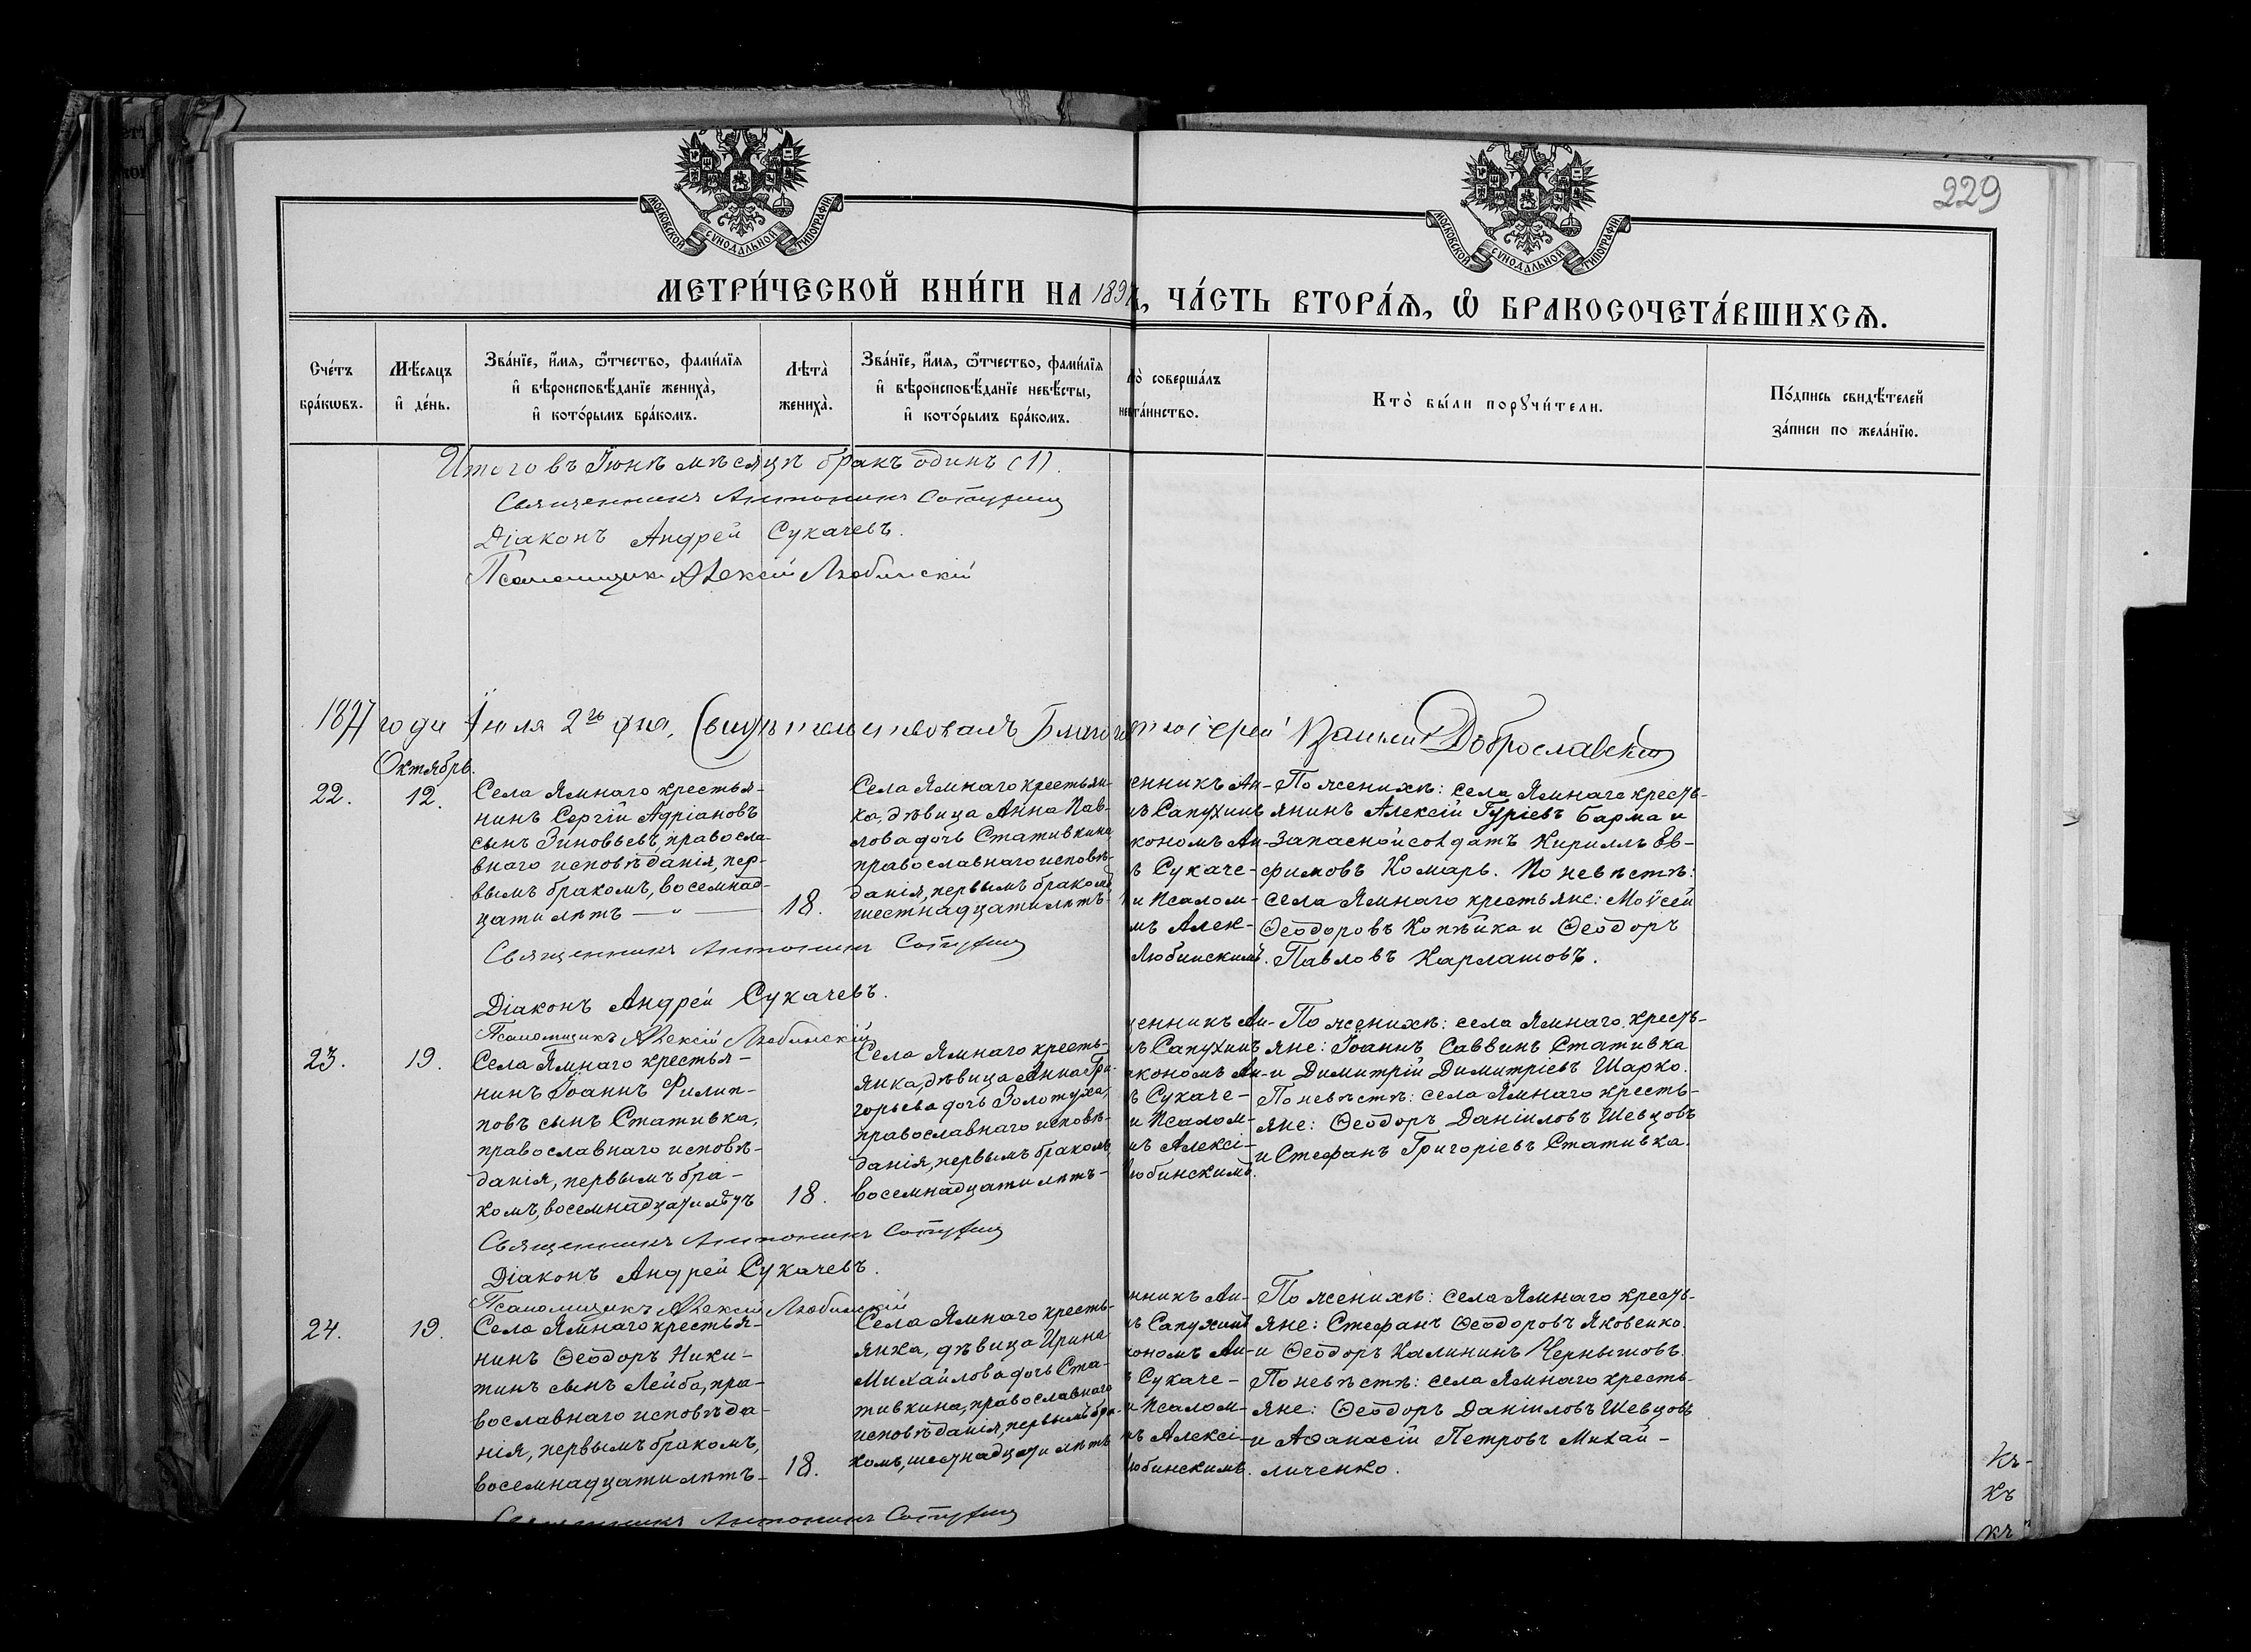 229
МОСКОВСКОЙ СѴНОДАЛЬНОЙ ТИПОГРАФІИ
МОСКОВСКОЙ СѴНОДАЛЬНОЙ ТИПОГРАФІИ
МЕТРИ́ЧЕСКОЙ КНИ́ГИ НА 189 , ЧА́СТЬ ВТОРА́Ѧ, Ѽ БРАКОСОЧЕТА́ВШИХСѦ.
Сче́тъ
бра́кѡвъ.
Мѣ́сяцъ
и҆ де́нь.
Зва́нїе, и҆́мя, ѻ҆́тчество, фами́лїя
и҆ вѣроисповѣ́данїе жениха̀,
и҆ кото́рымъ бра́комъ.
Лѣта̀
жениха̀.
Зва́нїе, и҆́мя, ѻ҆́тчество, фами́лїя
и҆ вѣроисповѣ́данїе невѣ́сты,
и҆ кото́рымъ бра́комъ.
то̀ соверша́лъ
та́инство.
Кто̀ бы́ли порꙋчи́тели.
По́дпись свидѣ́телей
за́писи по жела́нїю.
Итого въ Іюнѣ мѣсяцѣ бракъ одинъ (1).
Священникъ Антонинъ Сапухинъ
Діаконъ Андрей Сукачевъ.
Псаломщикъ Алексій Любинскій
1897 года Іюля 2го дня, Свидѣтельствовалъ Доброславскій
Октябрь.
22.
12.
Села Ямнаго крестья-
нинъ Сергій Адріановъ
сынъ Зиновьевъ, правосла-
внаго исповѣданія, пер-
вымъ бракомъ, восемнад-
цати лѣтъ — " —
18.
Села Ямнаго крестьян-
ка, дѣвица Анна Пав-
лова дочь Стативкина
православнаго исповѣ-
данія, первымъ бракомъ,
шестнадцати лѣтъ-
енникъ Ан-
нъ Сапухинъ
кономъ Ан-
ъ Сукаче-
и Псалом-
мъ Алек-
Любинскимъ.
По женихѣ: села Ямнаго кресть-
янинъ Алексій Гуріевъ Барма и
запасной солдатъ Кириллъ Ев-
фимовъ Комарь. По невѣстѣ:
села Ямнаго крестьяне: Моѵсей
Ѳеодоровъ Копѣйка и Ѳеодоръ
Павловъ Карлашовъ.
Священникъ Антонинъ Сапухинъ
Діаконъ Андрей Сукачевъ.
Псаломщикъ Алексій Любинскій
23.
19.
Села Ямнаго крестья-
нинъ Іоаннъ Филип-
повъ сынъ Стативка,
православнаго исповѣ-
данія, первымъ бра-
комъ, восемнадцати лѣтъ
18.
Села Ямнаго кресть-
янка, дѣвица Анна Гри-
горьева дочь Золотуха,
православнаго исповѣ-
данія, первымъ бракомъ,
восемнадцати лѣтъ-
щенникъ Ан-
нъ Сапухинъ
акономъ Ан-
ъ Сукаче-
и Псалом-
мъ Алексі-
Любинскимъ.
По женихѣ: села Ямнаго кресть-
яне: Іоаннъ Саввинъ Стативка
и Димитрій Димитріевъ Шарко.
По невѣстѣ: села Ямнаго кресть-
яне: Ѳеодоръ Даніиловъ Шевцовъ
и Стефанъ Григоріевъ Стативка.
Священникъ Антонинъ Сапухинъ
Діаконъ Андрей Сукачевъ.
Псаломщикъ Алексій Любинскій
24.
19.
Села Ямнаго крестья-
нинъ Ѳеодоръ Ники-
тинъ сынъ Лейба, пра-
вославнаго исповѣда-
нія, первымъ бракомъ,
восемнадцати лѣтъ-
18.
Села Ямнаго кресть-
янка, дѣвица Ирина
Михайлова дочь Ста-
тивкина, православнаго
исповѣданія, первымъ бра-
комъ, шестнадцати лѣтъ
нникъ Ан-
нъ Сапухинъ
кономъ Ан-
ъ Сукаче-
и Псалом-
мъ Алексі-
юбинскимъ.
По женихѣ: села Ямнаго кресть-
яне: Стефанъ Ѳеодоровъ Яковенко.
и Ѳеодоръ Калининъ Чернышовъ.
По невѣстѣ: села Ямнаго кресть-
яне: Ѳеодоръ Даніиловъ Шевцовъ
и Аѳанасій Петровъ Михай-
личенко.
Священникъ Антонинъ Сапухинъ
къ-
къ
къ